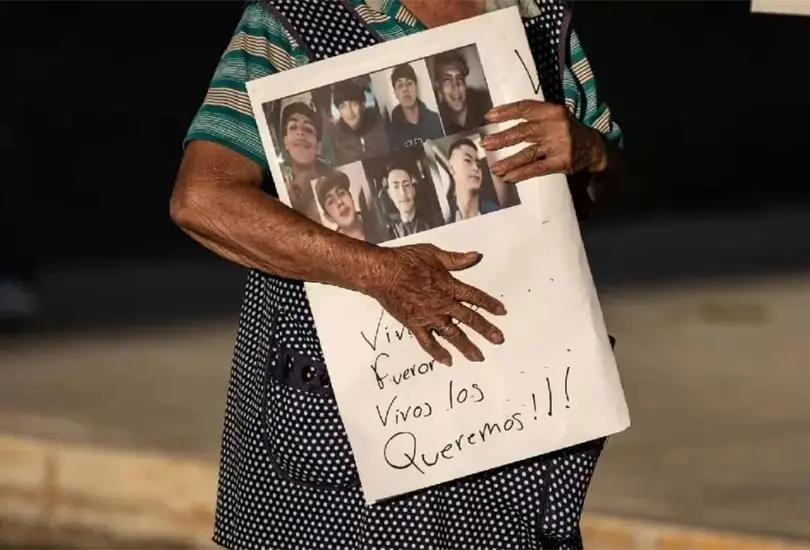 V
Viv
fueron
Vivos los
Queremos!!!